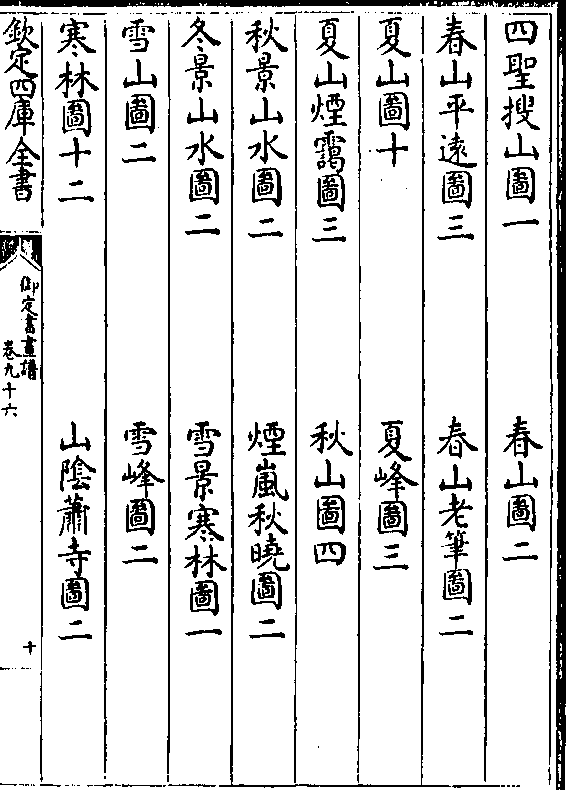 四聖搜山圖一　春山圖二
春山平逺圖三　春山老筆圖二
夏山圖十　夏峰圖三
夏山煙靄圖三　秋山圖四
秋景山水圖二　煙嵐秋曉圖二
冬景山水圖二　雪景寒林圖一
雪山圖二　雪峰圖二
寒林圖十二　山隂蕭寺圖二
欽定四庫全書
御定書畫譜
卷九十六
十